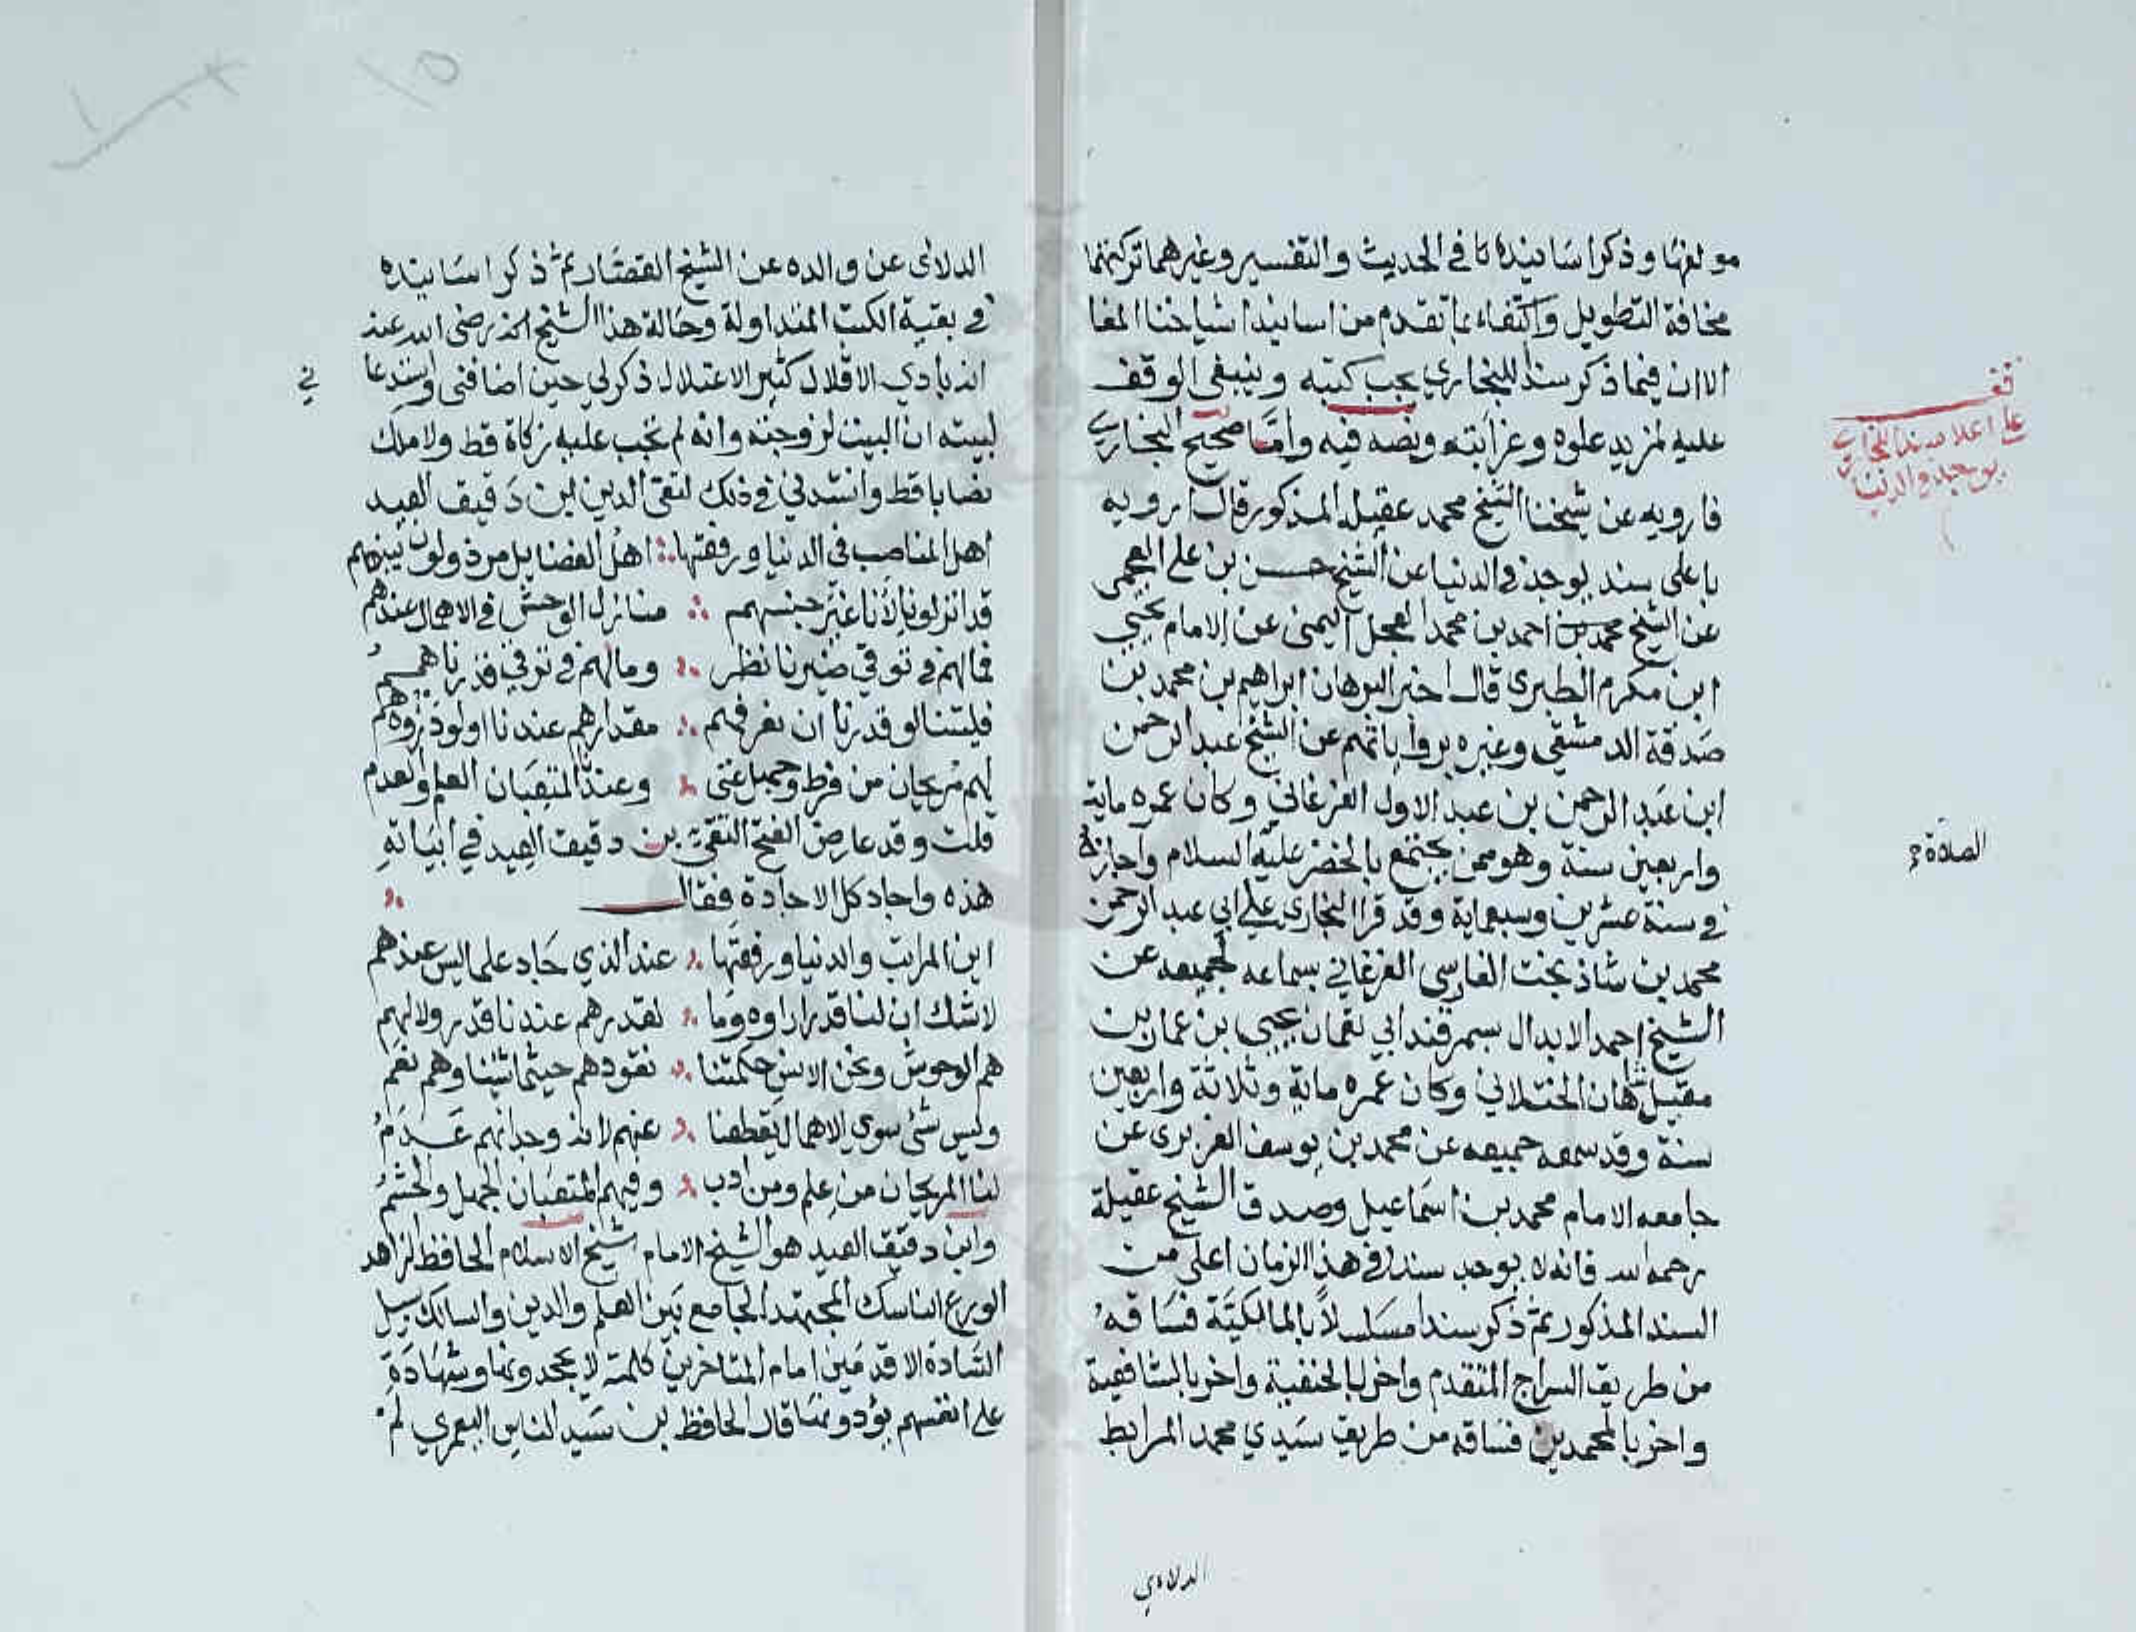 مولفها وذكر اسانيده تا في الحديث والتفسير وغيرهما تركتها
مخافة التطويل واكتفاء بما تقدم من اسانيد اشياخنا المغا
الا ان فيما ذكر سندا للبخاري يجب كتبه وينبغي الوقف
عليه لمزيد علوه وغرابته ونصه فيه واما صحيح البخاري
فارويه عن شيخنا الشيخ محمد عقيلة المذكور قال ارويه
باعلى سند يوجد في الدنيا عن الشيخ حسن بن علي العجمي
عن الشيخ محمد بن احمد بن محمد العجل اليمني عن الامام يحيى
ابن مكرم الطبري قال اخبر البرهان ابراهيم بن محمد بن
صدقة الدمشقي وغيره برواياتهم عن الشيخ عبد الرحمن
ابن عبد الرحمن بن عبد الاول الفرغاني وكان عمره ماية
واربعين سنة وهو ممن يجتمع بالخضر عليه السلام واجازة
في سنة عشرين وسبعماية وقد قرا البخاري علي ابي عبد الرحمن
محمد بن شاذ بخت الفارسي الفرغاني بسماعه لجميعه عن
الشيخ احمد الابدال بسمرقند ابي لقمان يحيى بن عمار بن
مقبل شاهان الختلاني وكان عمره ماية وثلاثة واربعين
سنة وقد سمعه جميعه عن محمد بن يوسف الفربري عن
جامعه الامام محمد بن اسماعيل وصدق الشيخ عقيلة
رحمه الله فانه لا يوجد سند في هذا الزمان اعلى من
السند المذكور ثم ذكر سندا مسلسلا بالمالكية فساقه
من طريق السراج المتقدم واخر بالحنفية واخر بالشافعية
واخر بالمحمدين فساقه من طريق سيدي محمد المرابط
قف
على اعلا سند للبخاري
يوجد في الدنيا
الصلاة و
الدلاءي
الدلائي عن والده عن الشيخ القصار ثم ذكر اسانيده
في بقية الكتب المتداولة وحالة هذا الشيخ انه رضي الله عنه
انه بادي الاقلال كثير الاعتلال ذكر لي حين اضافني واستدعا
ني
لبيته ان البيت لزوجته وانه لم تجب عليه زكاة قط ولا ملك
نصابا قط وانشدني في ذلك لتقي الدين ابن دقيق العيد
اهل المناصب في الدنيا ورفعتها اهل الفضايل مرذولون بينهم
قد انزلونا لانا غير جنسهم منازل الوحش في الاهمال عندهم
فما لهم في توقي ضيرنا نظر وما لهم في ترقي قدرنا همم
فليتنا لو قدرنا ان نعرفهم مقدارهم عندنا او لو دروه هم
لهم مريحان من فرط وجهل غنى وعندنا المتعبان العلم والعدم
قلت وقد عارض الفتح التقي بن دقيق العيد في ابياته
هذه واجاد كل الاجادة فقال
اين المراتب والدنيا ورفعتها عند الذي حاد علما ليس عندهم
لا شك ان لنا قدرا راوه وما لقدرهم عندنا قدر ولا لهم
هم الوحوش ونحن الانس حكمتنا نقودهم حيثما شينا وهم نعم
وليس شئ سوى الاهمال يقطعنا عنهم لانه وجدانهم عدم
لنا المريحان من علم ومن ادب وفيهم المتعبان الجهل والحشم
وابن دقيق العيد هو الشيخ الامام شيخ الاسلام الحافظ الزاهد
الورع الناسك المجتهد الجامع بين العلم والدين والسالك سبيل
السادة الاقدمين امام المتاخرين كلمة لا يجحدونها وشهادة
على انفسهم يؤدونها قال الحافظ بن سيد الناس اليعمري لم